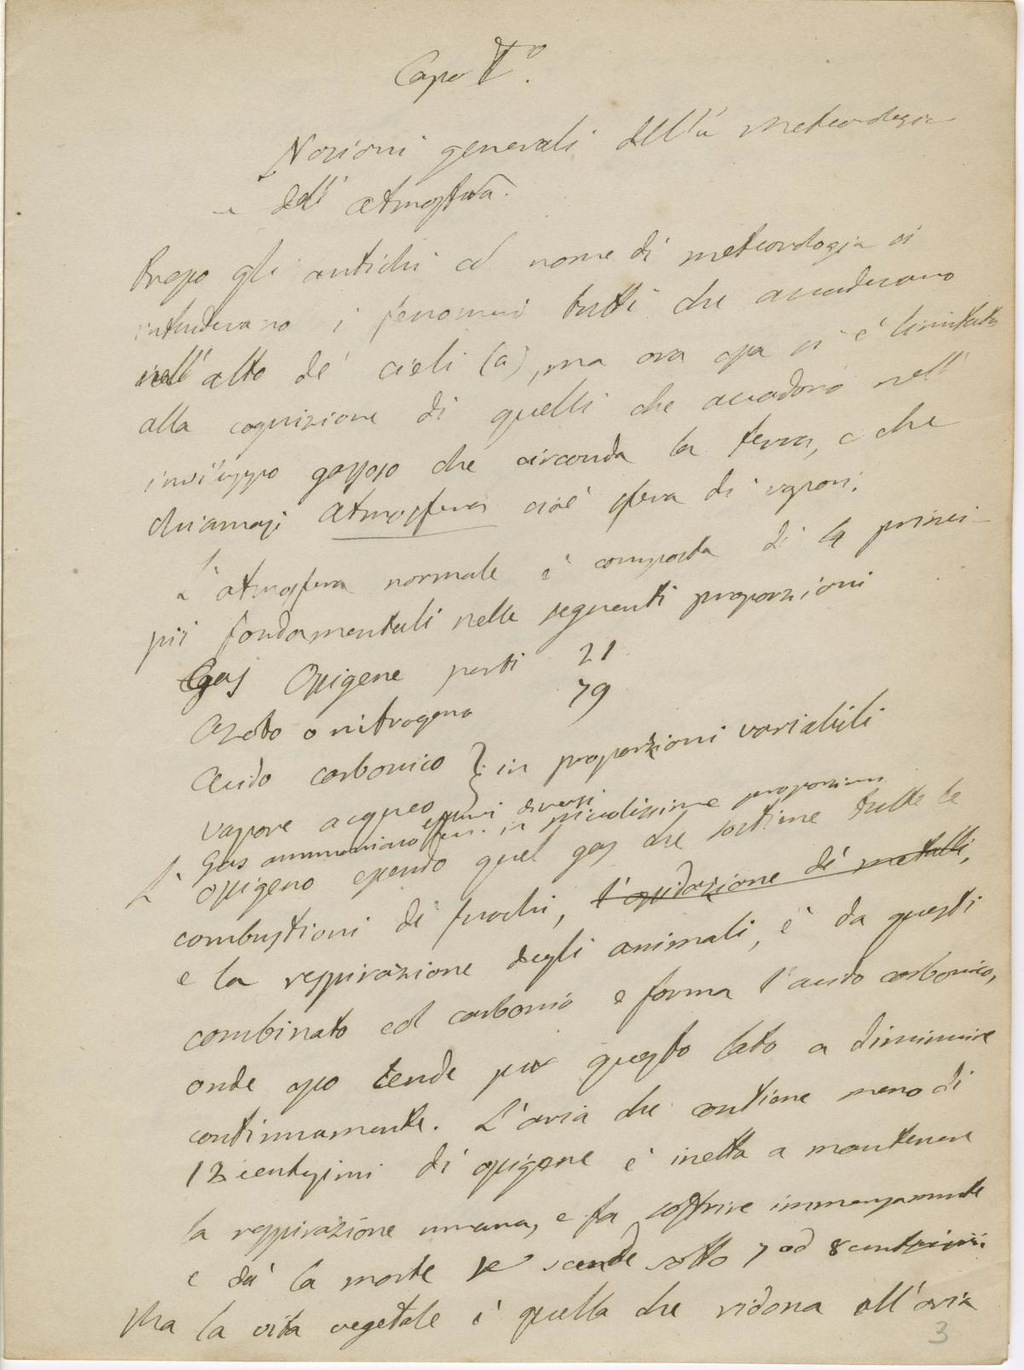 Capo I°.
Nozioni generali della meteorologia
e dell'atmosfera.
Presso gli antichi col nome di meteorologia si
intendevano i fenomeni tutti che accadevano
nell'alto de' cieli (a), ma ora essa si è limitata
alla cognizione di quelli che accadono nell'
inviluppo gassoso che circonda la terra, e che
chiamasi atmosfera cioè sfera di vapori.
L'atmosfera normale è composta di 4 princi-
pii fondamentali nelle seguenti proporzioni
Gas Ossigene parti 21
Azoto o nitrogeno 79
Acido carbonico } in proporzioni variabili
vapore acqueo
Gas ammoniaco in piccolissime proporzioni
effluvi diversi
L'ossigeno essendo quel gas che sostiene tutte le
combustioni di fuochi, l'ossidazione di metalli,
e la respirazione degli animali, è da questi
combinato col carbonio e forma l'acido carbonico,
onde esso tende per questo lato a diminuire
continuamente. L'aria che contiene meno di
12 centesimi di ossigene è inetta a mantenere
la respirazione umana, e fa soffrire immensamente
e dà la morte se scende sotto 7 ad 8 centesimi.
Ma la vita vegetale è quella che ridona all'aria
3